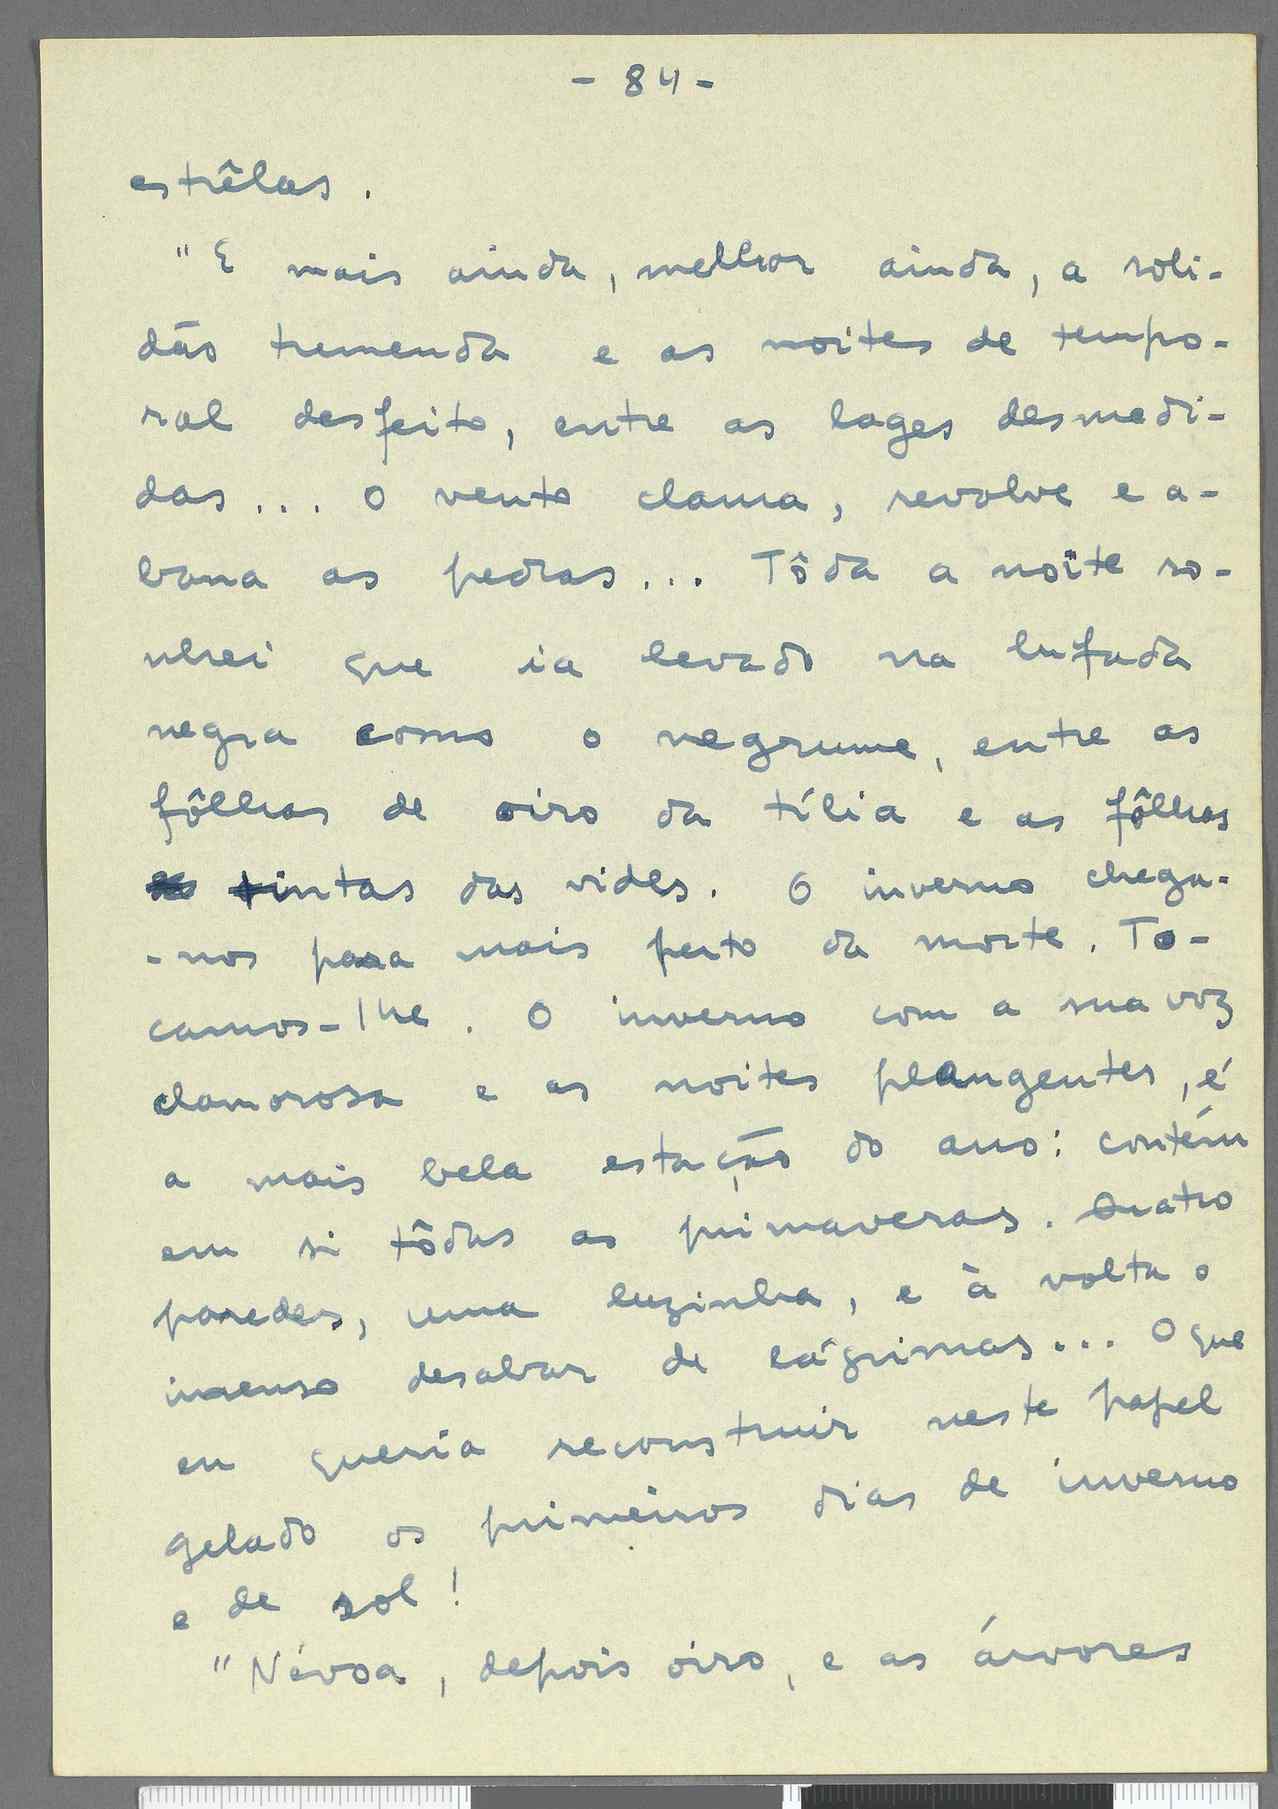 - 84 -
estrêlas.
"E mais ainda, melhor ainda, a soli-
dão tremenda e as noites de tempo-
ral desfeito, entre as lages desmedi-
das... O vento clama, revolve e a-
bana as pedras... Tôda a noite so-
nhei que ia levado na lufada
negra como o negrume, entre as
fôlhas de oiro da tília e as fôlhas
tintas das vides. O inverno chega-
-nos para mais perto da morte. To-
camos-lhe. O inverno com a sua voz
clamorosa e as noites plangentes, é
a mais bela estação do ano: contém
em si tôdas as primaveras. Quatro
paredes, uma luzinha, e à volta o
imenso desabar de lágrimas... O que
eu queria reconstruir neste papel
gelado os primeiros dias de inverno
e de sol!
"Névoa, depois oiro, e as árvores